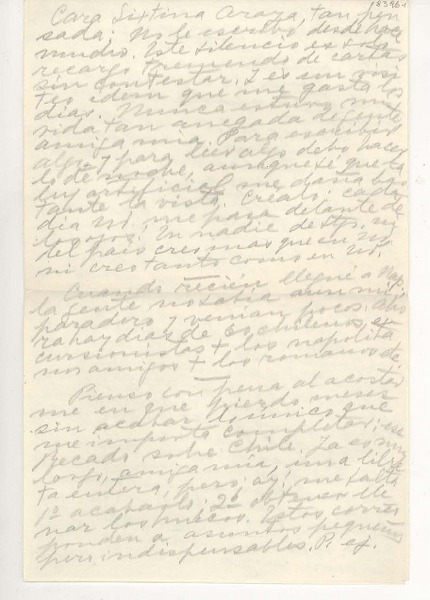 83964
Cara Sixtina Araya, tan pen
sada: No le escribo desde hace
mucho. Este silencio es solo
recargo tremendo de cartas
sin contestar. Y es un visi
teo idem que me gasta los
días. Nunca estuvo mi
vida tan anegada de gente,
amiga mía. Para escribir
algo y para leer algo debo hacer
lo de noche, aunque sé que la
luz artificial me daña bas
tante la vista. Créalo: cada
día Ud. me pasa delante de
los ojos. En nadie de
del país creo más que en Ud.
ni creo tanto como en Ud.
Cuando recién llegué a Nap.
la gente no sabía aun mi
paradero y venían pocos. Aho
ra hay días de 60 chilenos, ex
cursionistas + los napolita
nos amigos + los romanos de
Pienso con pena al acostar
me en que pierdo meses
sin acabar lo único que
me importa completar: ese
Recado sobre Chile. Ya es muy
largo, amiga mía, una libre
ta entera, pero ay! me falta
1º acabarlo. 2º obtener lle
nar los huecos. Estos corres
ponden a asuntos pequeños
pero indispensables. P. ej.